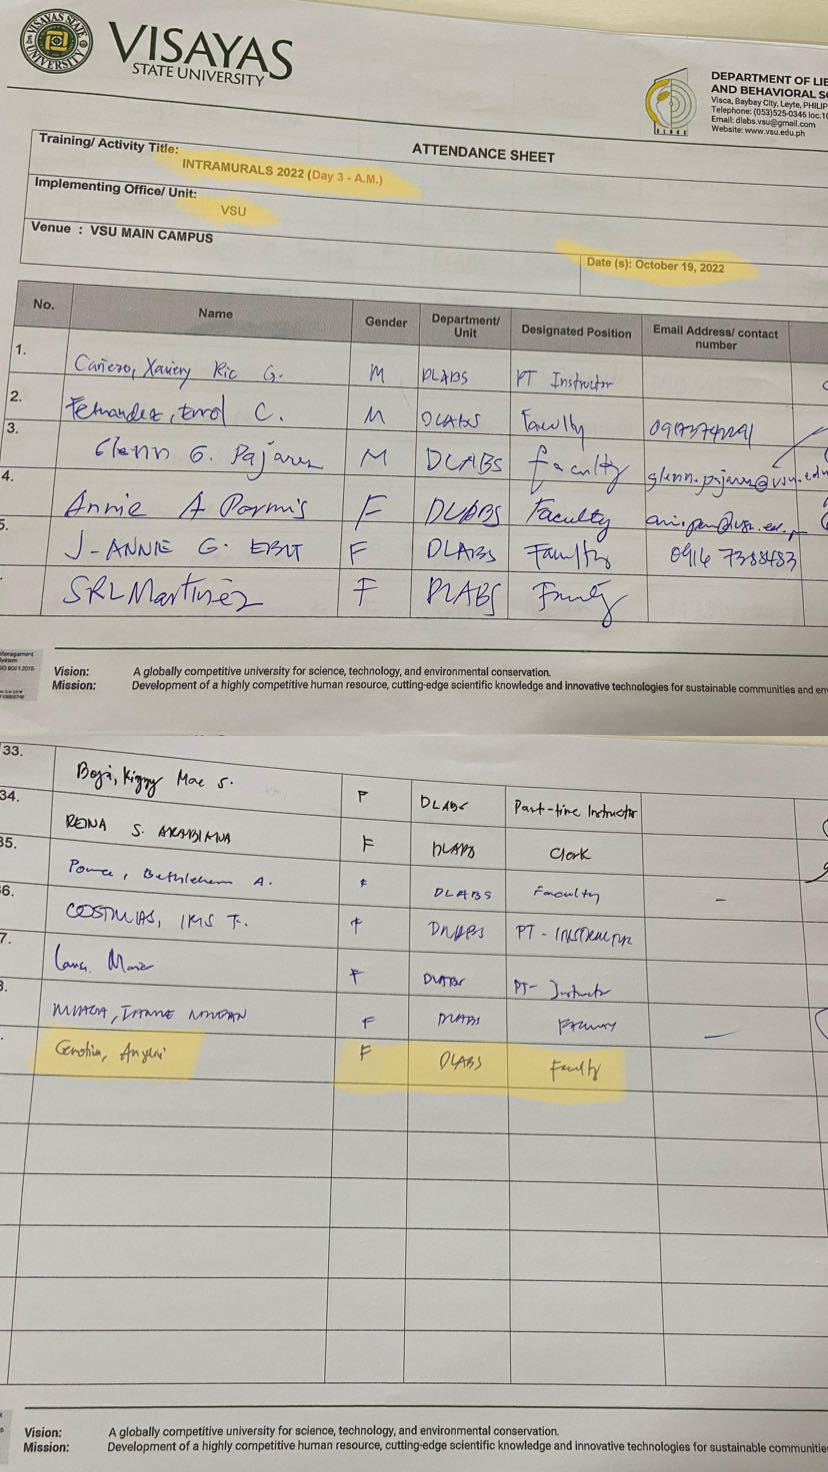 VISAYAS STATE UNIVERSITY
VISAYAS
STATE UNIVERSITY
DEPARTMENT OF LIB
AND BEHAVIORAL S
Visca, Baybay City, Leyte, PHILIP
Telephone: (053)525-0346 loc.
Email: dlabs.vsu@gmail.com
Website: www.vsu.edu.ph
Training/ Activity Title: ATTENDANCE SHEET
INTRAMURALS 2022 (Day 3 - A.M.)
Implementing Office/ Unit:
VSU
Venue : VSU MAIN CAMPUS
Date (s): October 19, 2022
No. Name Gender Department/ Unit Designated Position Email Address/ contact number
1. Cañezo, Xaviery Ric G. M DLABS PT Instructor
2. Fernandez, Errol C. M DLABS Faculty
3. Glenn G. Pajares M DLABS faculty glenn.pajares@vsu.edu
4. Annie A Parmis F DLABS Faculty
5. J-ANNIE G. EBIT F DLABS Faculty 0916 7388483
SRLMartinez F DLABS Faculty
Management
System
ISO 9001:2015
Vision: A globally competitive university for science, technology, and environmental conservation.
Mission: Development of a highly competitive human resource, cutting-edge scientific knowledge and innovative technologies for sustainable communities and en
33. Mae S. F DLABS Part-time Instructor
34. REINA S. F DLABS Clerk
35. Ponce, Bethlehem A. F DLABS Faculty -
6. COSTMIAS, IRIS T. F DLABS PT - INSTRUCTOR
7. F DLABS PT- Instructor
8. F DLABS Faculty —
F DLABS Faculty
Vision: A globally competitive university for science, technology, and environmental conservation.
Mission: Development of a highly competitive human resource, cutting-edge scientific knowledge and innovative technologies for sustainable communitie